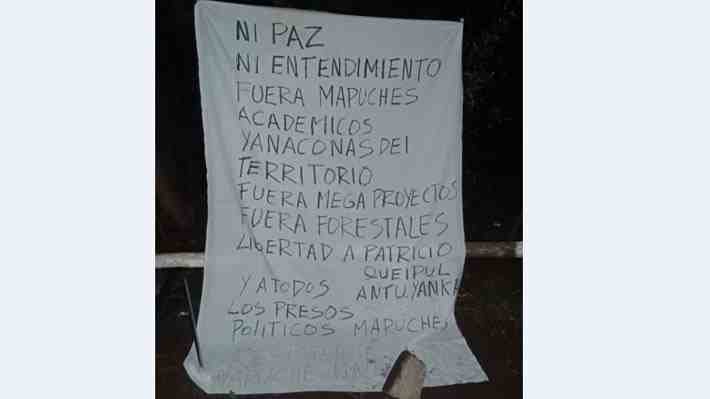 NI PAZ
NI ENTENDIMIENTO
FUERA MAPUCHES
ACADEMICOS
YANACONAS DEl
TERRITORIO
FUERA MEGA PROYECTOS
FUERA FORESTALES
LIBERTAD A PATRICIO
QUEIPUL
Y A TODOS ANTU.YANKA
LOS PRESOS
POLITICOS MAPUCHES